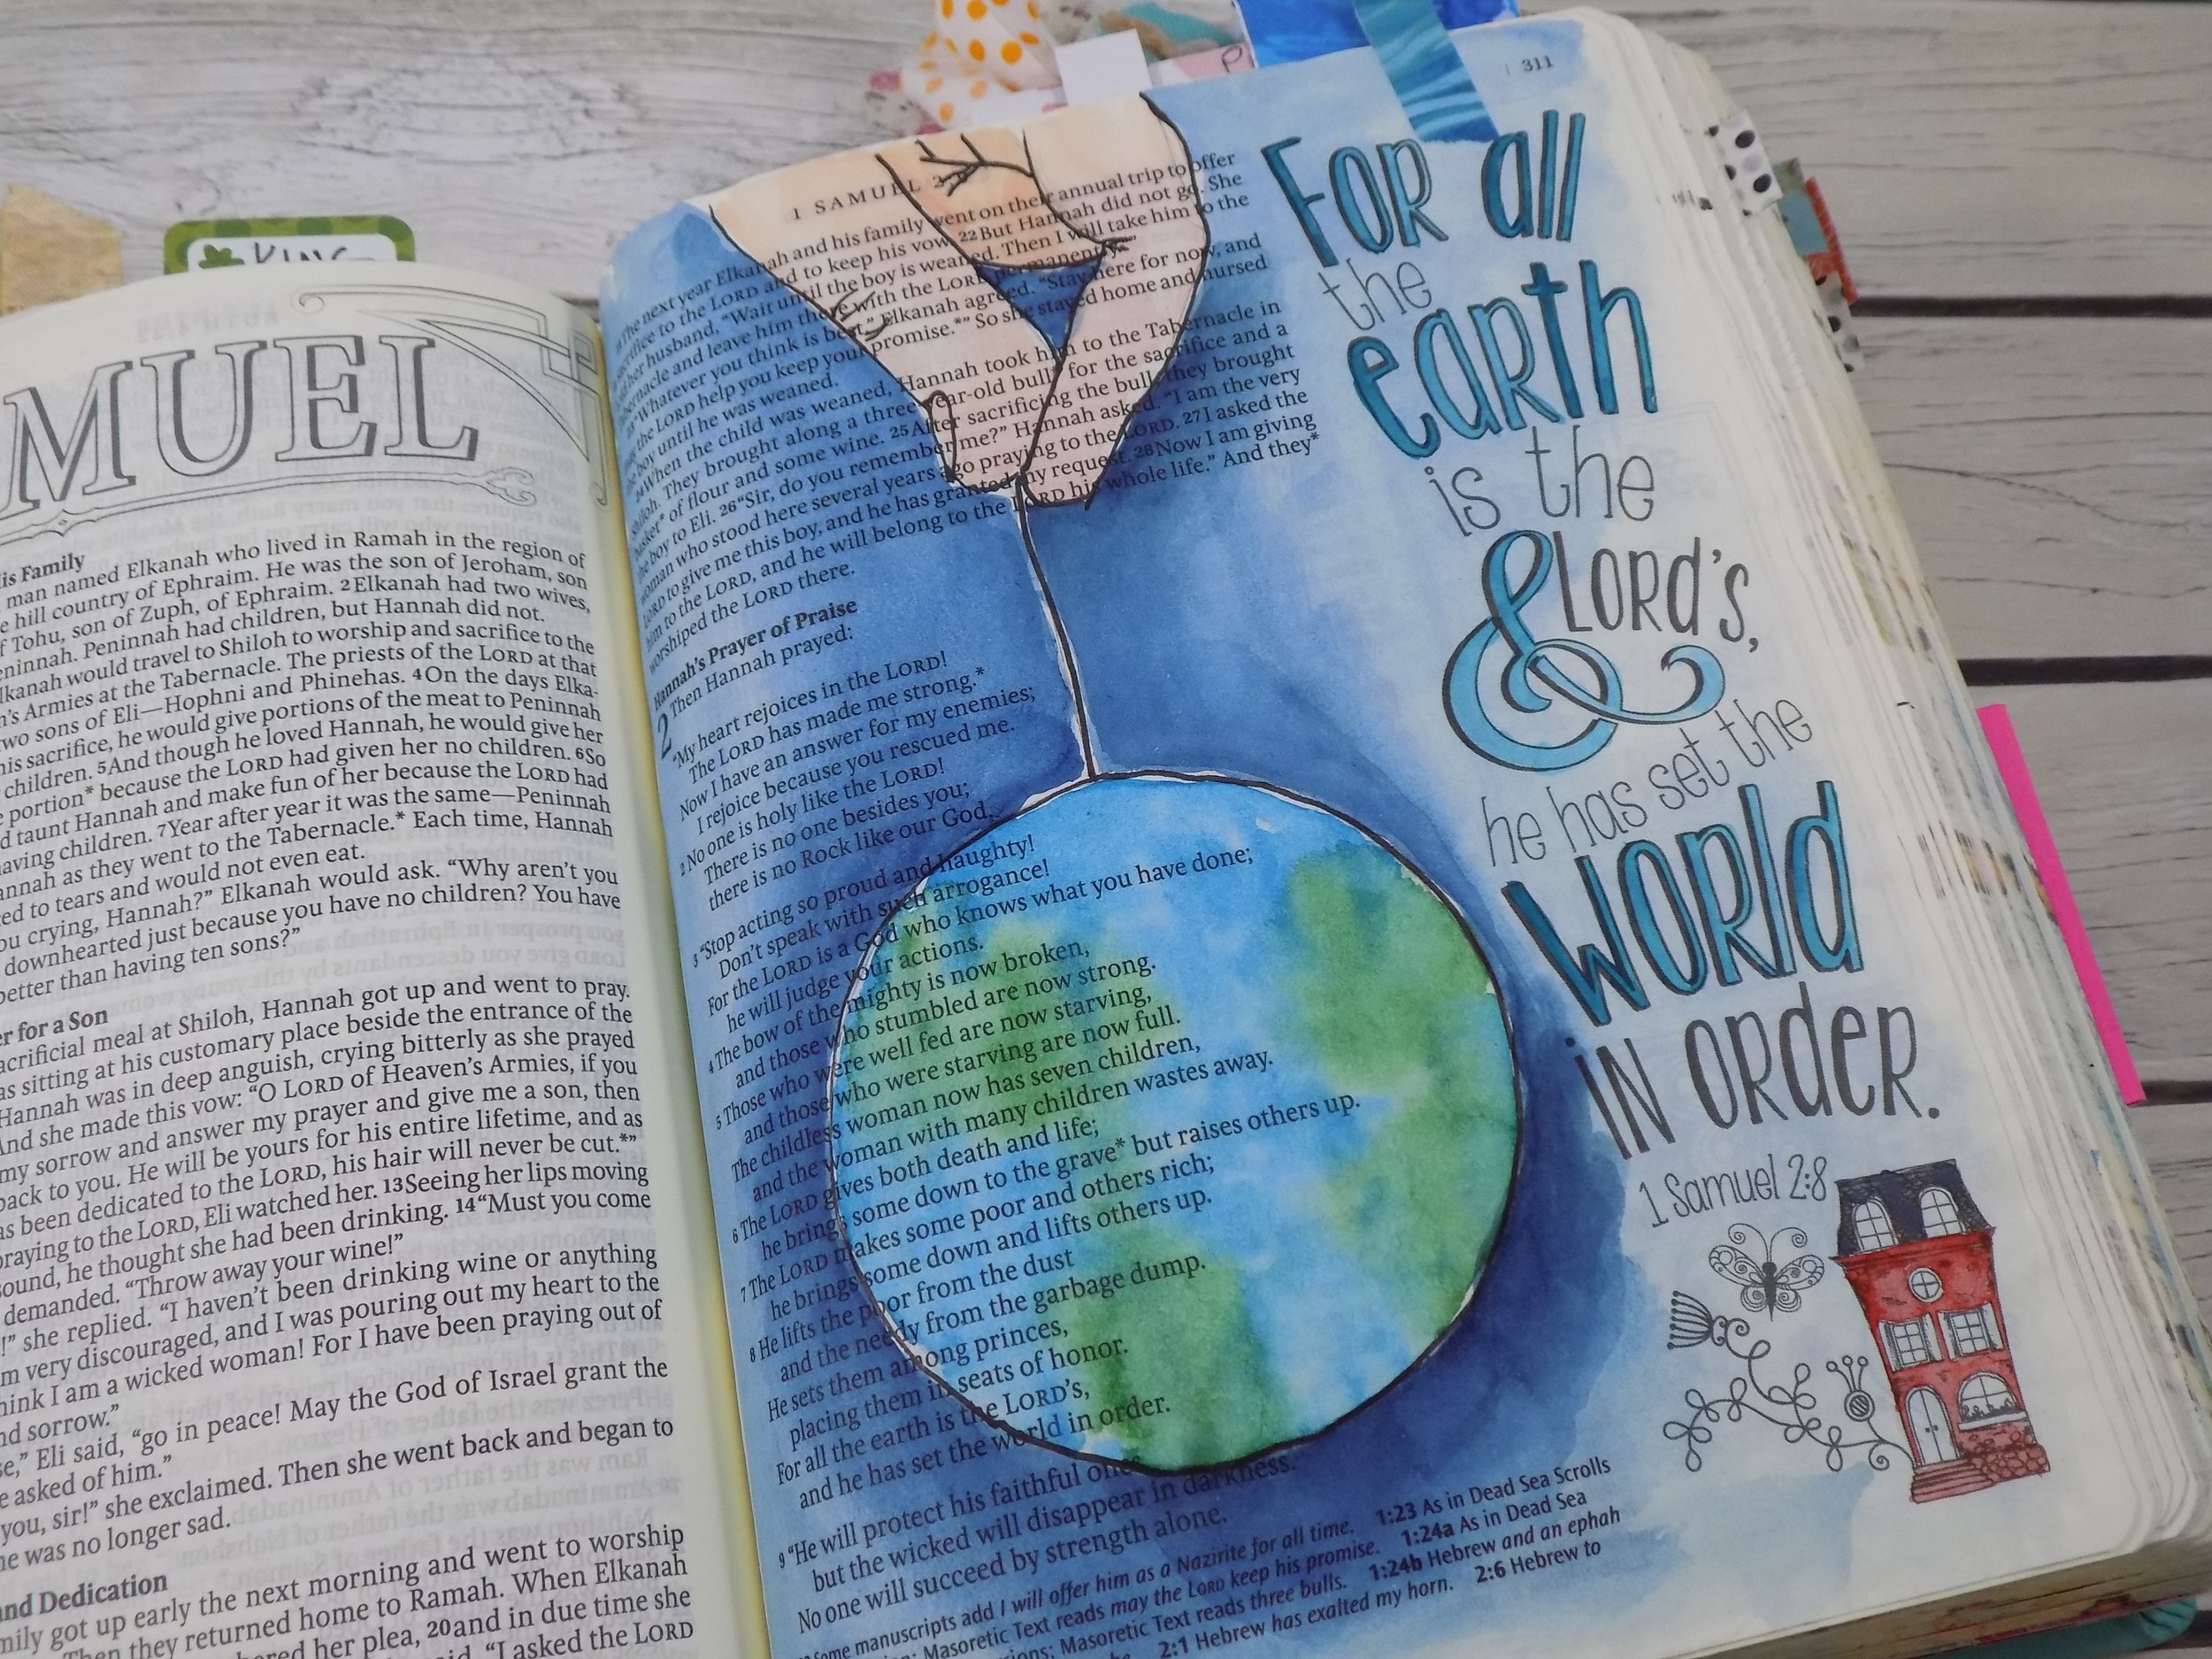 KING
MUEL
is Family
man named Elkanah who lived in Ramah in the region of
hill country of Ephraim. He was the son of Jeroham, son
f Tohu, son of Zuph, of Ephraim. 2 Elkanah had two wives,
eninnah. Peninnah had children, but Hannah did not.
lkanah would travel to Shiloh to worship and sacrifice to the
n's Armies at the Tabernacle. The priests of the LORD at that
two sons of Eli—Hophni and Phinehas. 4 On the days Elka-
his sacrifice, he would give portions of the meat to Peninnah
children. 5 And though he loved Hannah, he would give her
portion* because the LORD had given her no children. 6 So
d taunt Hannah and make fun of her because the LORD had
aving children. 7 Year after year it was the same—Peninnah
annah as they went to the Tabernacle.* Each time, Hannah
ed to tears and would not even eat.
ou crying, Hannah?” Elkanah would ask. “Why aren’t you
downhearted just because you have no children? You have
better than having ten sons?”
er for a Son
acrificial meal at Shiloh, Hannah got up and went to pray.
as sitting at his customary place beside the entrance of the
Hannah was in deep anguish, crying bitterly as she prayed
And she made this vow: “O LORD of Heaven’s Armies, if you
my sorrow and answer my prayer and give me a son, then
back to you. He will be yours for his entire lifetime, and as
as been dedicated to the LORD, his hair will never be cut.*”
praying to the LORD, Eli watched her. 13 Seeing her lips moving
ound, he thought she had been drinking. 14 “Must you come
demanded. “Throw away your wine!”
!” she replied. “I haven’t been drinking wine or anything
m very discouraged, and I was pouring out my heart to the
hink I am a wicked woman! For I have been praying out of
nd sorrow.”
se,” Eli said, “go in peace! May the God of Israel grant the
e asked of him.”
you, sir!” she exclaimed. Then she went back and began to
he was no longer sad.
and Dedication
mily got up early the next morning and went to worship
Then they returned home to Ramah. When Elkanah
her plea, 20 and in due time she
“I asked the LORD
1 SAMUEL 2
311
The next year Elkanah and his family went on their annual trip to offer
sacrifice to the LORD and to keep his vow. 22 But Hannah did not go. She
her husband, “Wait until the boy is weaned. Then I will take him to the
bernacle and leave him there with the LORD permanently.*”
“Whatever you think is best,” Elkanah agreed. “Stay here for now, and
the LORD help you keep your promise.*” So she stayed home and nursed
boy until he was weaned.
24 When the child was weaned, Hannah took him to the Tabernacle in
Shiloh. They brought along a three-year-old bull* for the sacrifice and a
basket* of flour and some wine. 25 After sacrificing the bull, they brought
the boy to Eli. 26 “Sir, do you remember me?” Hannah asked. “I am the very
woman who stood here several years ago praying to the LORD. 27 I asked the
LORD to give me this boy, and he has granted my request. 28 Now I am giving
him to the LORD, and he will belong to the LORD his whole life.” And they*
worshiped the LORD there.
Hannah’s Prayer of Praise
2 Then Hannah prayed:
“My heart rejoices in the LORD!
The LORD has made me strong.*
Now I have an answer for my enemies;
I rejoice because you rescued me.
2 No one is holy like the LORD!
There is no one besides you;
there is no Rock like our God.
3 “Stop acting so proud and haughty!
Don’t speak with such arrogance!
For the LORD is a God who knows what you have done;
he will judge your actions.
4 The bow of the mighty is now broken,
and those who stumbled are now strong.
5 Those who were well fed are now starving,
and those who were starving are now full.
The childless woman now has seven children,
and the woman with many children wastes away.
6 The LORD gives both death and life;
he brings some down to the grave* but raises others up.
7 The LORD makes some poor and others rich;
he brings some down and lifts others up.
8 He lifts the poor from the dust
and the needy from the garbage dump.
He sets them among princes,
placing them in seats of honor.
For all the earth is the LORD’S,
and he has set the world in order.
9 “He will protect his faithful ones,
but the wicked will disappear in darkness.
No one will succeed by strength alone.
Some manuscripts add I will offer him as a Nazirite for all time. 1:23 As in Dead Sea Scrolls
Masoretic Text reads may the LORD keep his promise. 1:24a As in Dead Sea
Masoretic Text reads three bulls. 1:24b Hebrew and an ephah
2:1 Hebrew has exalted my horn. 2:6 Hebrew to
FOR all
the
earth
is the
LORD's,
&
he has set the
WORld
IN ORdeR.
1 Samuel 2:8